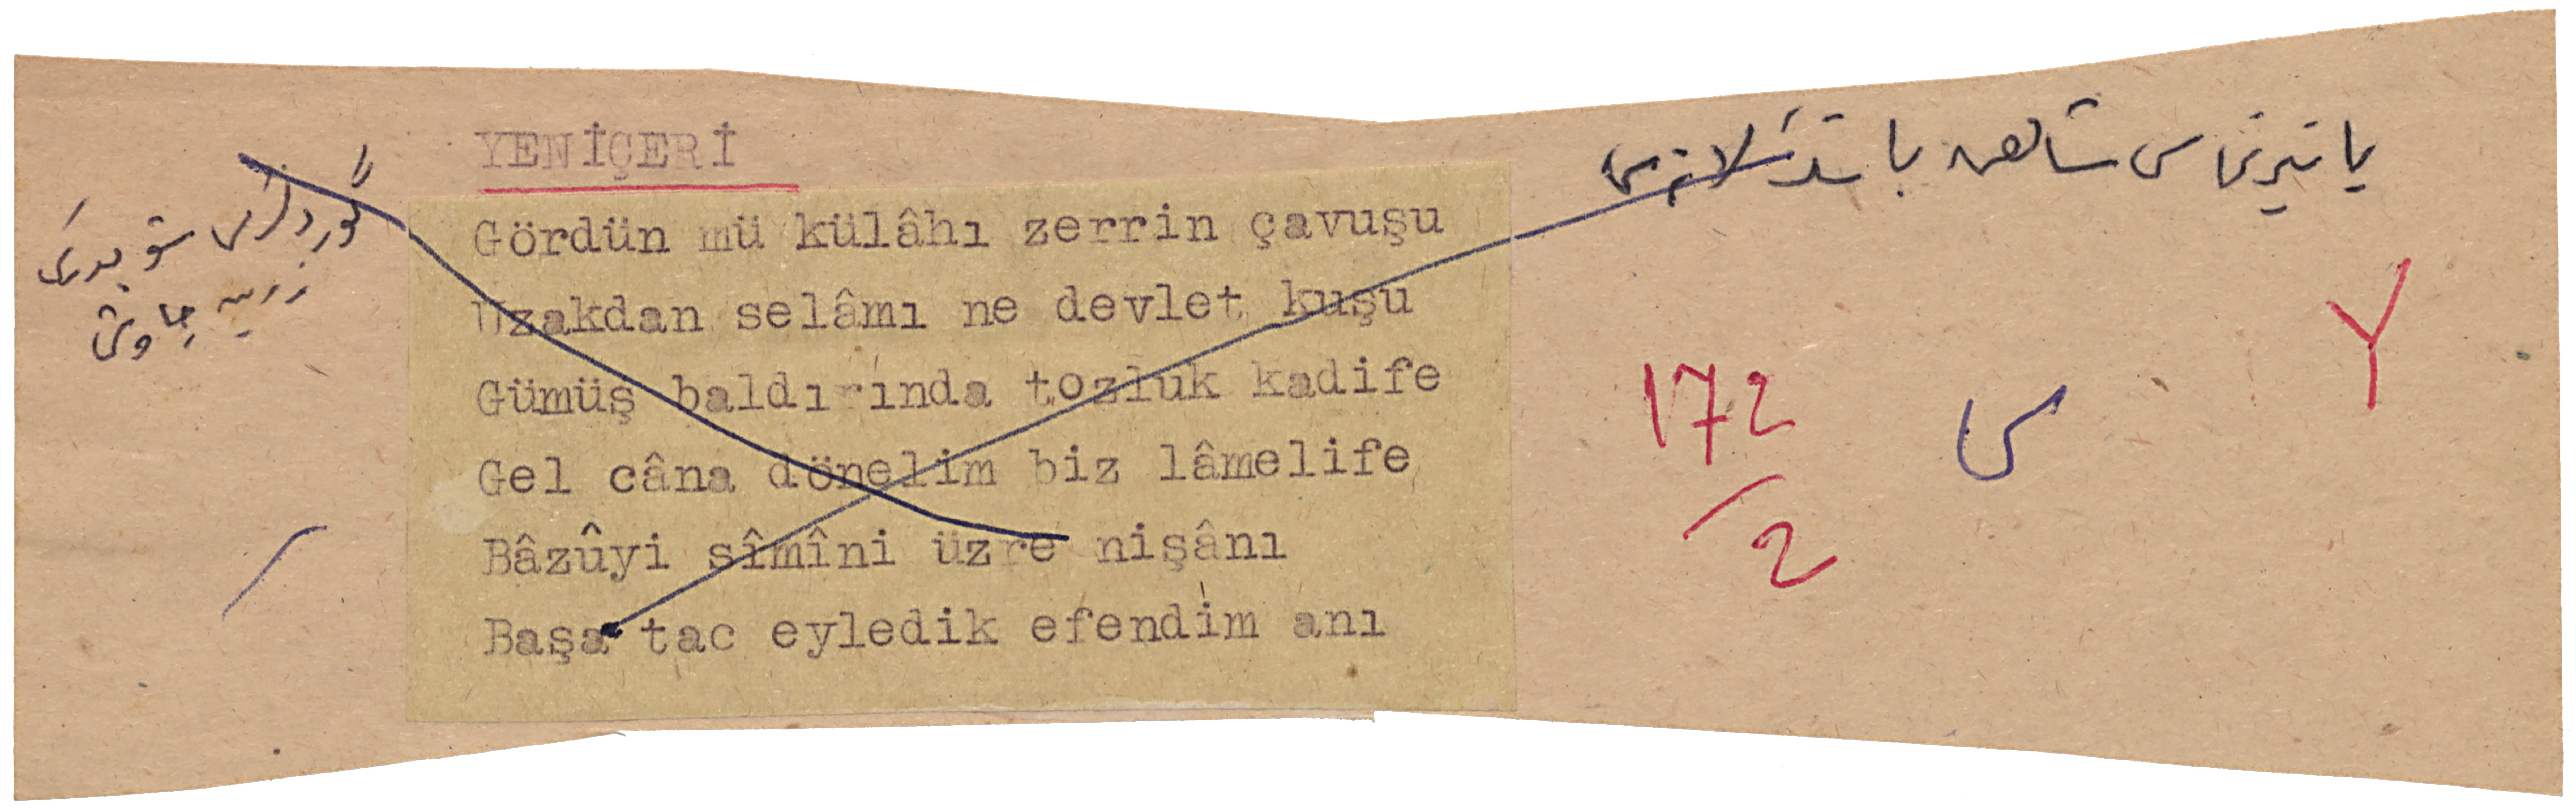 YENİÇERİ
Gördün mü külâhı zerrin çavuşu
Uzakdan selâmı ne devlet kuşu
Gümüş baldırında tozluk kadife
Gel câna dönelim biz lâmelife
Bâzûyi sîmîni üzre nişânı
Başa tac eyledik efendim anı
زرين چاوش
172
/2
ى
Y